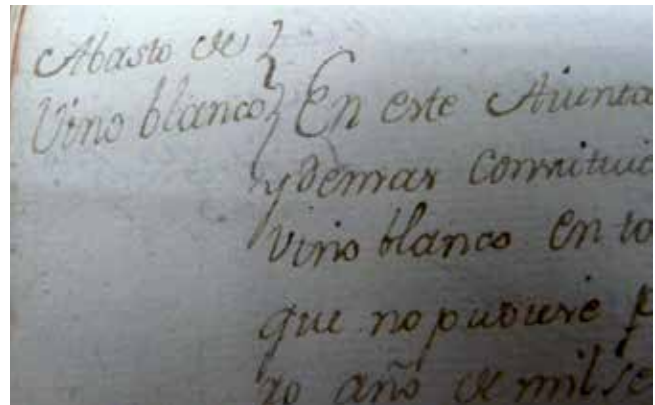 Abasto de
Vino blanco
En este Aiunta
y demas Constituic
vino blanco en to
que no pudiere p
zo año de mil se